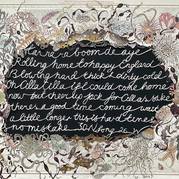 Tarrara boom de aye
Rolling home to happy England
Blowing hard thick & dirty cold
Oh Alla Illa if I could come home
now but cheer up Jack for Allas sake
theres a good time coming wait
a little longer this is hard times &
no mistake